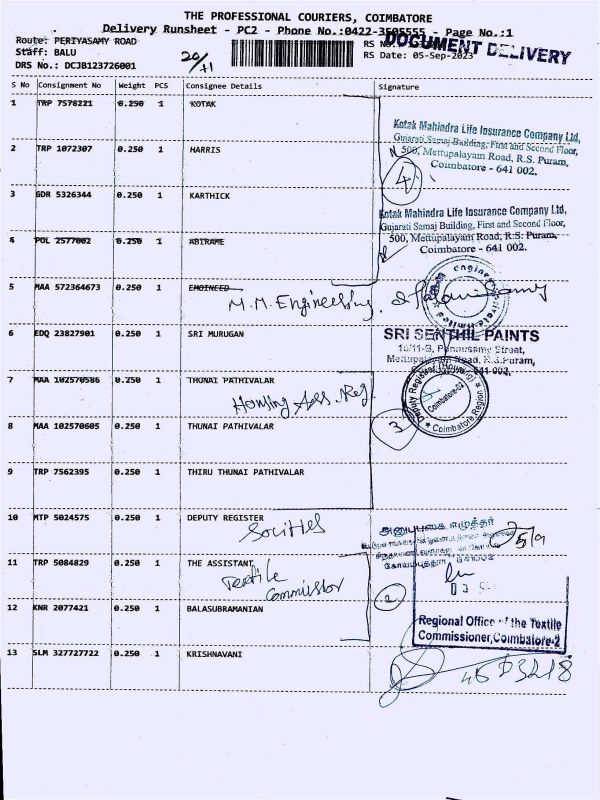 THE PROFESSIONAL COURIERS, COIMBATORE
Delivery Runsheet - PC2 - Phone No.:0422-3505555 - Page No.:1
Route: PERIYASAMY ROAD
Staff: BALU
DRS No.: DCJB123726001
20/+1
RS No.
RS Date: 05-Sep-2023
DOCUMENT DELIVERY
S No Consignment No Weight PCS Consignee Details Signature
1 TRP 7578221 0.250 1 KOTAK
Kotak Mahindra Life Insurance Company Ltd,
Gujarati Samaj Building, First and Second Floor,
500, Mettupalayam Road, R.S. Puram,
Coimbatore - 641 002.
2 TRP 1072307 0.250 1 HARRIS
4
3 GDR 5326344 0.250 1 KARTHICK
Kotak Mahindra Life Insurance Company Ltd,
Gujarati Samaj Building, First and Second Floor,
500, Mettupalayam Road, R.S. Puram,
Coimbatore - 641 002.
4 POL 2577002 0.250 1 ABIRAME
5 MAA 572364673 0.250 1 EMGINEED
M.M. Engineering.
6 EDQ 23827901 0.250 1 SRI MURUGAN
SRI SENTHIL PAINTS
Street,
Road, R.S.Puram,
641 002.
7 MAA 102570586 1 THUNAI PATHIVALAR
Housing Ass. Reg
Deputy Registrar (Housing)
Coimbatore-02
Coimbatore Region
8 MAA 102570605 0.250 1 THUNAI PATHIVALAR
3
9 TRP 7562395 0.250 1 THIRU THUNAI PATHIVALAR
10 MTP 5024575 0.250 1 DEPUTY REGISTER
Societies
5/9
11 TRP 5084829 0.250 1 THE ASSISTANT
Textile
Commissor
2
12 KNR 2077421 0.250 1 BALASUBRAMANIAN
Regional Office of the Textile
Commissioner, Coimbatore-2
13 SLM 327727722 0.250 1 KRISHNAVANI